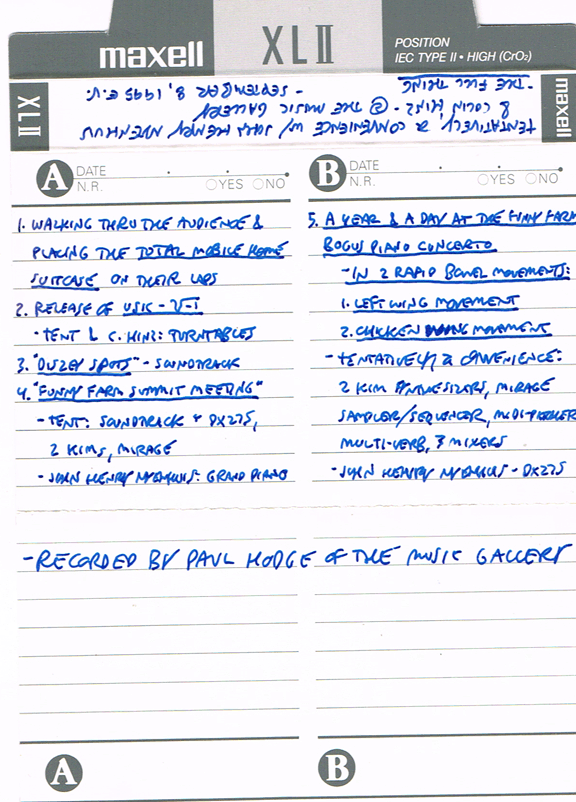 maxell
XLII
POSITION
IEC TYPE II • HIGH (CrO₂)
XLII
maxell
TENTATIVELY, A CONVENIENCE W/ JOHN HENRY NYENHUIS
& COLIN HINZ - @ THE MUSIC GALLERY
- SEPTEMBAR 8, 1995 E.V.
- THE FULL THING
A DATE
N.R. YES NO
1. WALKING THRU THE AUDIENCE &
PLACING THE TOTAL MOBILE HOME
SUITCASE ON THEIR LAPS
2. RELEASE OF USIC - √-1
- TENT & C. HINZ: TURNTABLES
3. "OUZEY SPOTS" - SOUNDTRACK
4. "FUNNY FARM SUMMIT MEETING"
- TENT: SOUNDTRACK + DX27S,
2 KIMS, MIRAGE
- JOHN HENRY NYENHUIS: GRAND PIANO
B DATE
N.R. YES NO
5. A YEAR & A DAY AT THE FUNNY FARM
BOGUS PIANO CONCERTO
- IN 2 RAPID BOWEL MOVEMENTS:
1. LEFT WING MOVEMENT
2. CHICKEN WING MOVEMENT
- TENTATIVELY, A CONVENIENCE:
2 KIM SYNTHESIZERS, MIRAGE
SAMPLER/SEQUENCER, MIDI-
MULTI-VERB, 3 MIXERS
- JOHN HENRY NYENHUIS - DX27S
- RECORDED BY PAUL HODGE OF THE MUSIC GALLERY
A
B